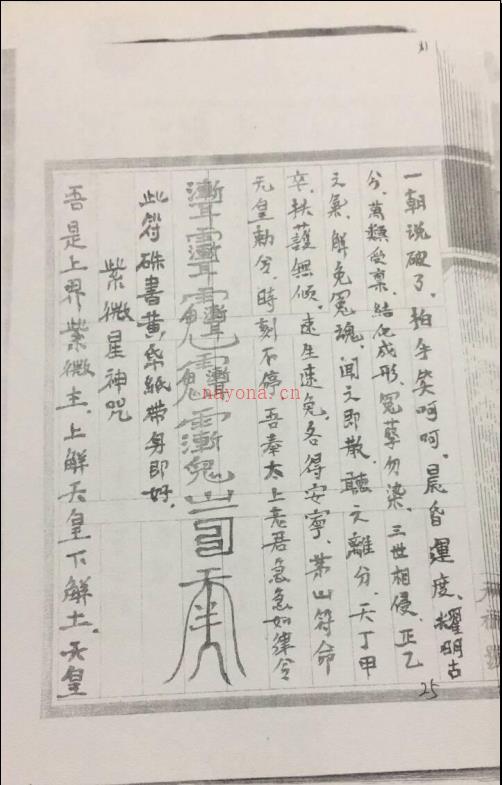 一朝说破了，拍手笑呵呵，晨昏運度，耀明古
今，萬類受禀，结化成形，冤孽勿染，三世相侵，正乙
之氣，解免冤魂，闻之即散，聽之離分，天丁甲
卒，扶護無倾，速生速免，各得安寧，茅山符命
元皇勅令，時刻不停，吾奉太上老君急急如律令
此符硃書黄纸带身即好，
紫微星神咒
吾是上界紫微主，上解天皇下解土，天皇
25
nayona.cn